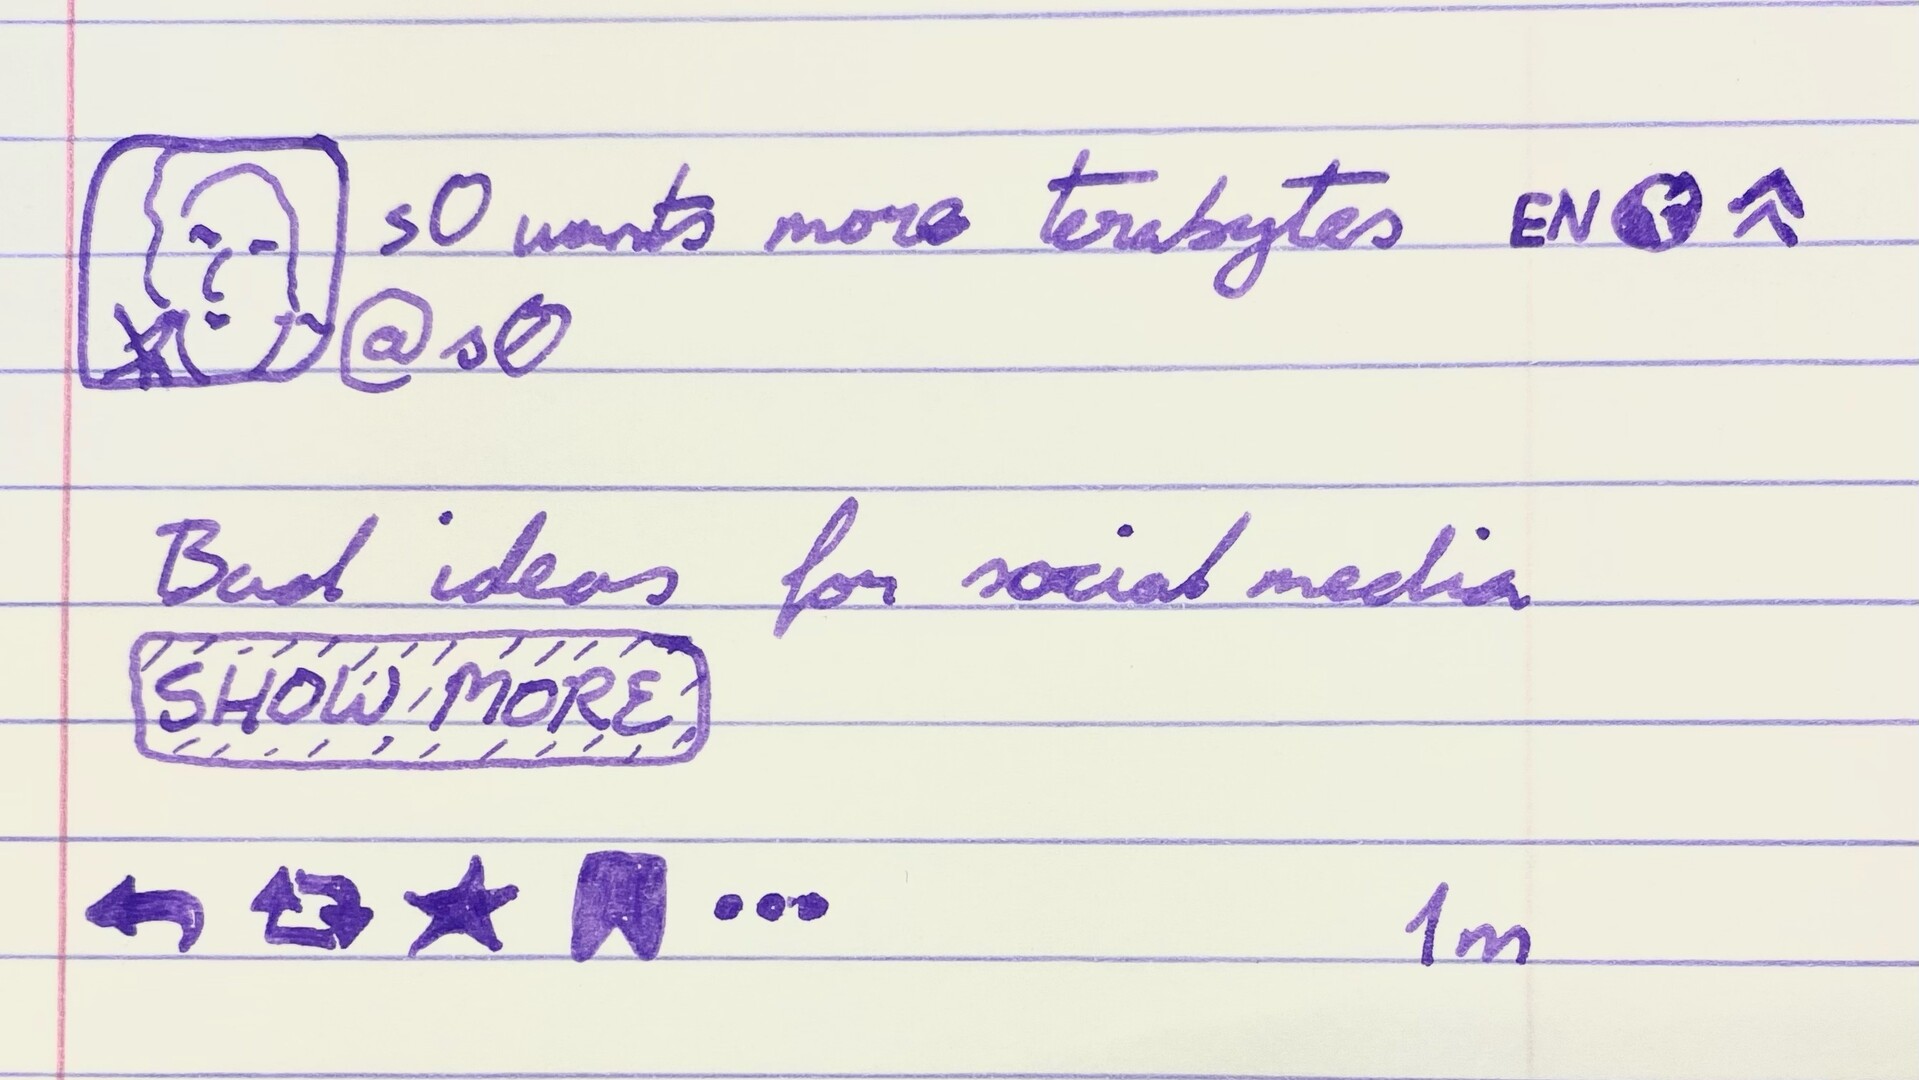 s0 wants more terabytes EN
@s0
Bad ideas for social media
SHOW MORE
1m